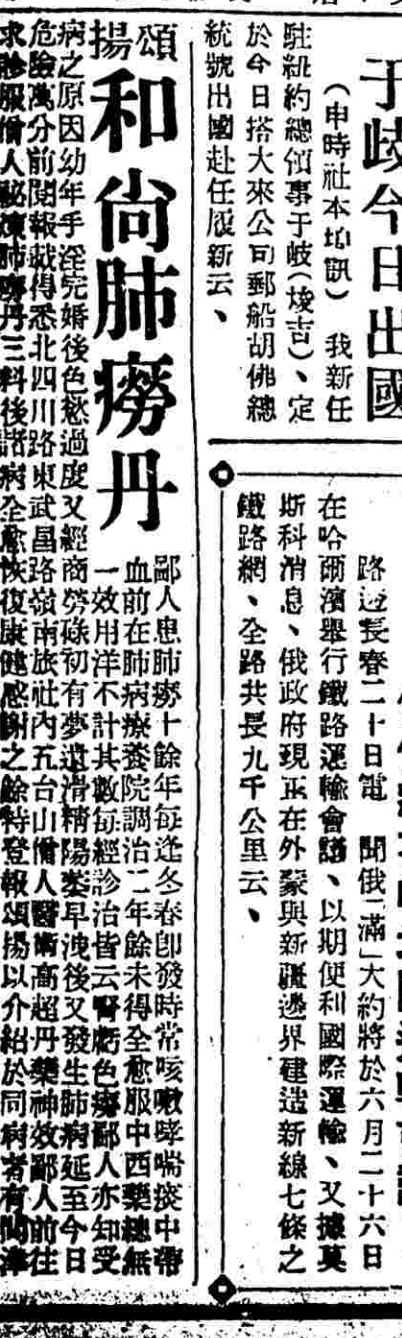 于歧今日出國
（申時社本埠訊）　我新任
駐紐約總領事于歧（焌吉）、定
於今日搭大來公司郵船胡佛總
統號出國赴任履新云、
路透長春二十日電　聞俄「滿」大約將於六月二十六日
在哈爾濱舉行鐵路運輸會議、以期便利國際運輸、又據莫
斯科消息、俄政府現正在外蒙與新疆邊界建造新線七條之
鐵路網、全路共長九千公里云、
頌揚
和尙肺癆丹
鄙人患肺癆十餘年每逢冬春卽發時常咳嗽哮喘痰中帶
血前在肺病療養院調治二年餘未得全愈服中西藥總無
一效用洋不計其數每經診治皆云腎虧色癆鄙人亦知受
病之原因幼年手淫完婚後色慾過度又經商勞碌初有夢遺滑精陽萎早洩後又發生肺病延至今日
危險萬分前閱報載得悉北四川路東武昌路嶺南旅社內五台山僧人醫術高超丹藥神效鄙人前往
求診服僧人秘煉肺癆丹三料後諸病全愈恢復康健感謝之餘特登報頌揚以介紹於同病者有問津